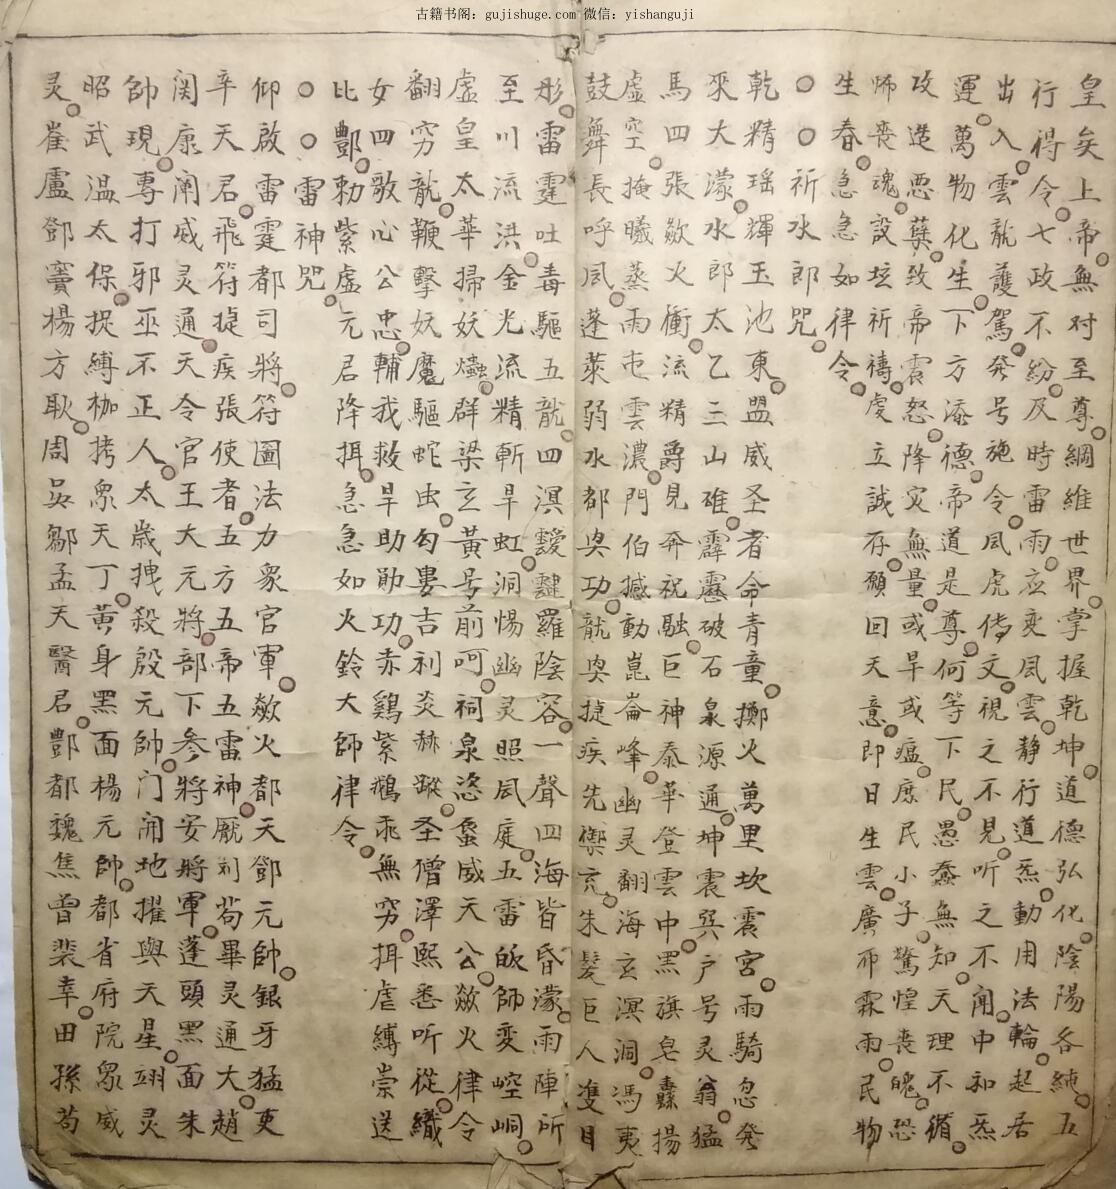 古籍书阁: gujishuge.com 微信: yishanguji
皇矣上帝無对至尊綱維世界掌握乾坤道德弘化陰陽各純五
行得令七政不紛及時雷雨应变凨雲静行道炁動用法輪起居
出入雲龍護駕発号施令凨虎侍文視之不見听之不聞中和炁
運萬物化生下方添德帝道是尊何等下民愚蠢無知天理不循
攻造恶孽致帝震怒降灾無量或旱或瘟庶民小子驚惶丧魄恐
怖丧魂設坛祈禱虔立誠存願回天意即日生雲廣布霖雨民物
生春急急如律令
祈水郎咒
乾精瑶輝玉池東盟威圣者命青童擲火萬里坎震宮雨騎忽発
來大濛水郎太乙三山碓霹靂破石泉源通坤震巽户号灵翁猛
馬四張歘火衝流精爵見奔祝融巨神泰華登雲中黑旗皂纛揚
虚空掩曦蒸雨屯雲濃門伯撼動崑崙峰幽灵翻海玄溟洞馮夷
鼓舞長呼凨蓬萊弱水都奥功龍奥捷疾先禦亢朱髮巨人隻目
彤雷霆吐毒驅五龍四溟靉靆羅陰容一聲四海皆昏濛雨陣所
至川流洪金光流精斬旱虹洞惕幽灵照凨庭五雷皈師变崆峒
虚皇太華掃妖爞群梁玄黃号前呵祠泉恣蛮威天公歘火律令
翻穷龍鞭擊妖魔驅蛇虫勾婁吉利炎赫蹤圣僧澤熙悉听從織
女四歌心公忠輔我救旱助勋功赤鷄紫鵝乖無穷揖虐縛祟送
比酆勅紫虚元君降揖急急如火鈴大師律令
雷神咒
仰啟雷霆都司將符圖法力衆官軍歘火都天鄧元帥銀牙猛吏
辛天君飛符捷疾張使者五方五帝五雷神厭刹苟畢灵通大趙
関康闡威灵通天令官王大元將部下参將安將軍蓬頭黑面朱
帥現專打邪巫不正人太歳拽殺殷元帥门闹地擢與天星翊灵
昭武温太保捉縛枷拷衆天丁黃身黑面楊元帥都省府院眾威
灵崔盧鄧竇楊方耿周吳鄒孟天醫君酆都魏焦曾裴幸田孫苟